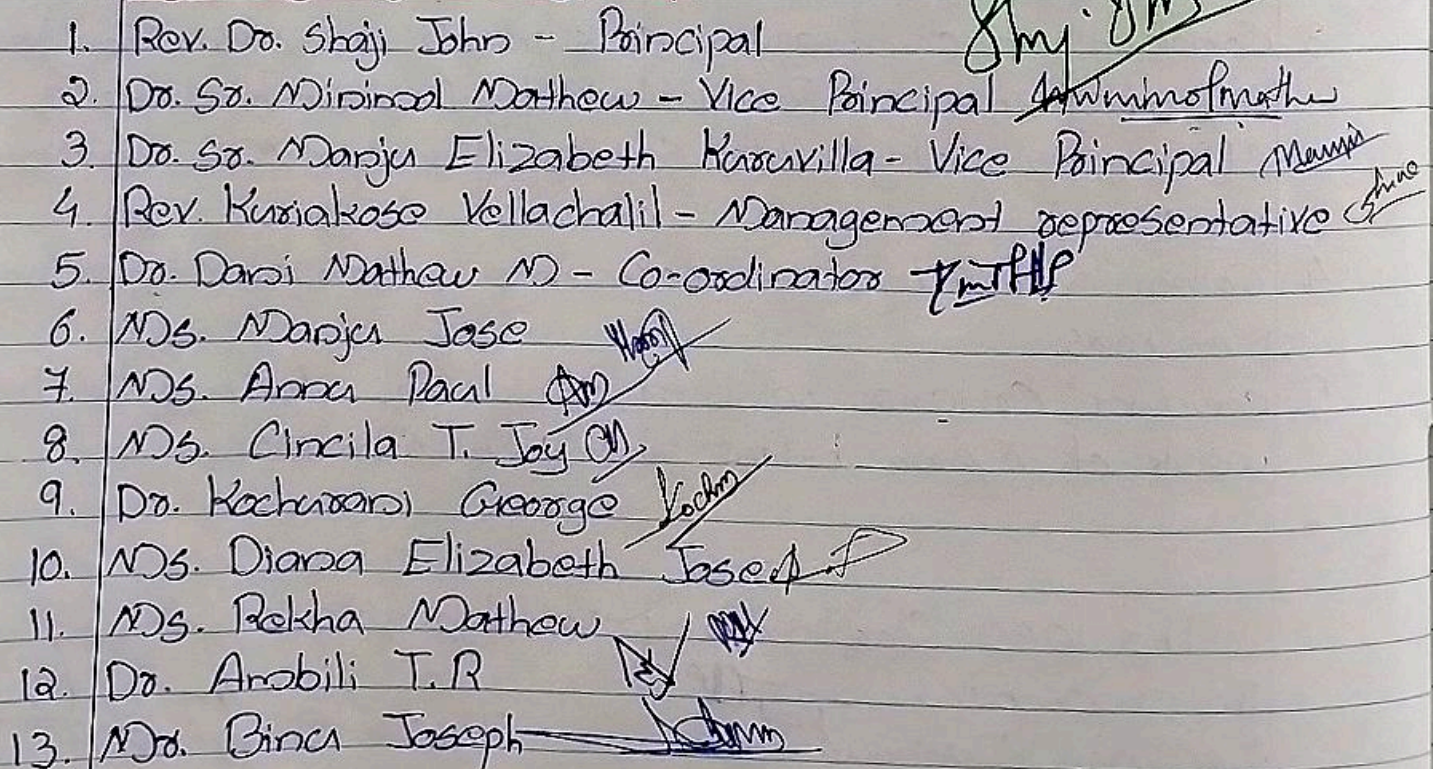 1. Rev. Dr. Shaji John - Principal
2. Dr. Sr. Minimol Mathew - Vice Principal
3. Dr. Sr. Manju Elizabeth Kuruvilla - Vice Principal
4. Rev. Kuriakose Vellachalil - Management representative
5. Dr. Darsi Mathew M - Co-ordinator
6. Ms. Manju Jose
7. Ms. Annu Paul
8. Ms. Cincila T. Joy
9. Dr. Kochurani George
10. Ms. Diana Elizabeth Jose
11. Ms. Rekha Mathew
12. Dr. Ambili T.R
13. Mr. Binu Joseph